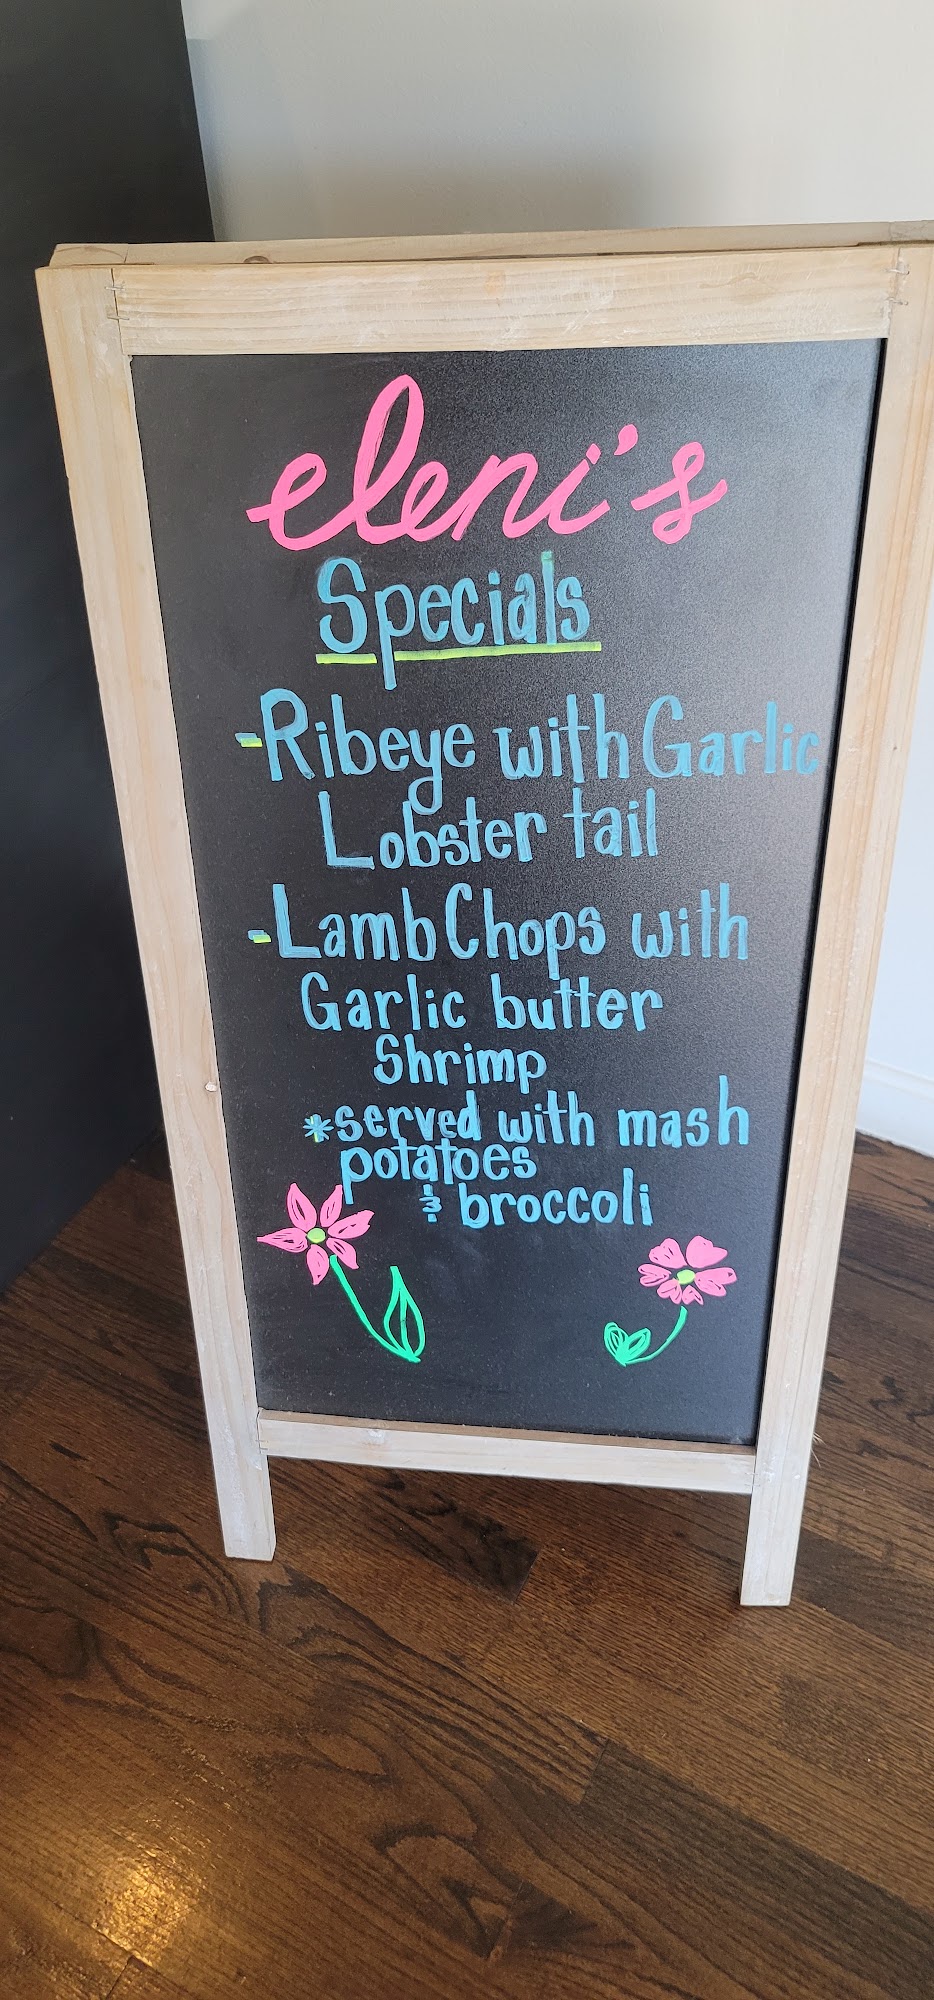 eleni's
Specials
-Ribeye with Garlic
Lobster tail
-Lamb Chops with
Garlic butter
Shrimp
*served with mash
potatoes
& broccoli